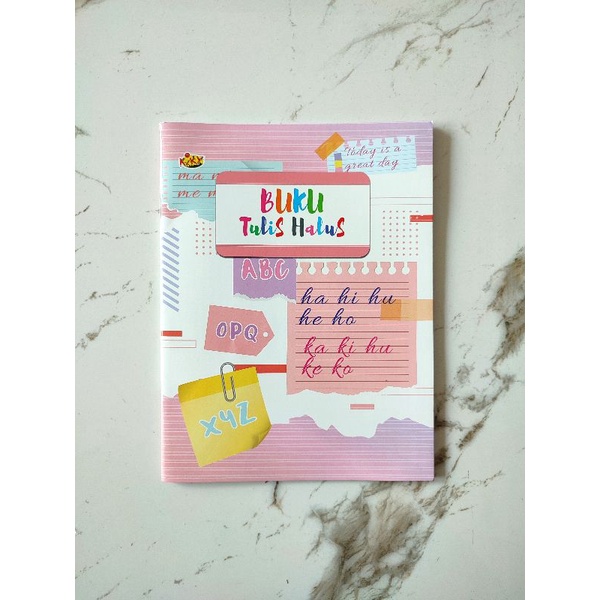 Today is a
great day
KIKY
ma m
me m
BUKU
TuliS HaluS
ABC
ha hi hu
he ho
OPQ
ka ki hu
ke ko
XYZ